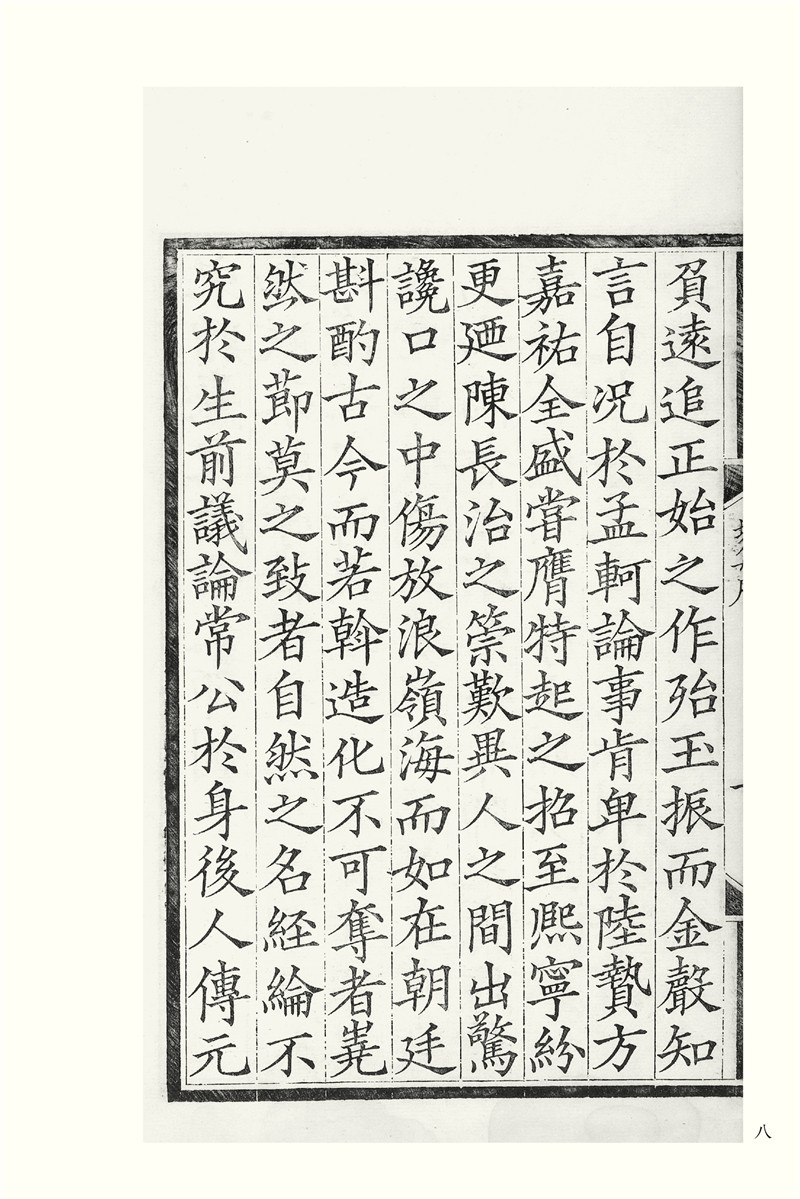 負遠追正始之作殆玉振而金聲知
言自况於孟軻論事肯卑於陸贄方
嘉祐全盛甞膺特起之招至熈寧紛
更廼陳長治之䇿歎異人之間出驚
讒口之中傷放浪嶺海而如在朝廷
斟酌古今而若斡造化不可奪者嶤
然之莭莫之致者自然之名經綸不
究於生前議論常公於身後人傳元
八